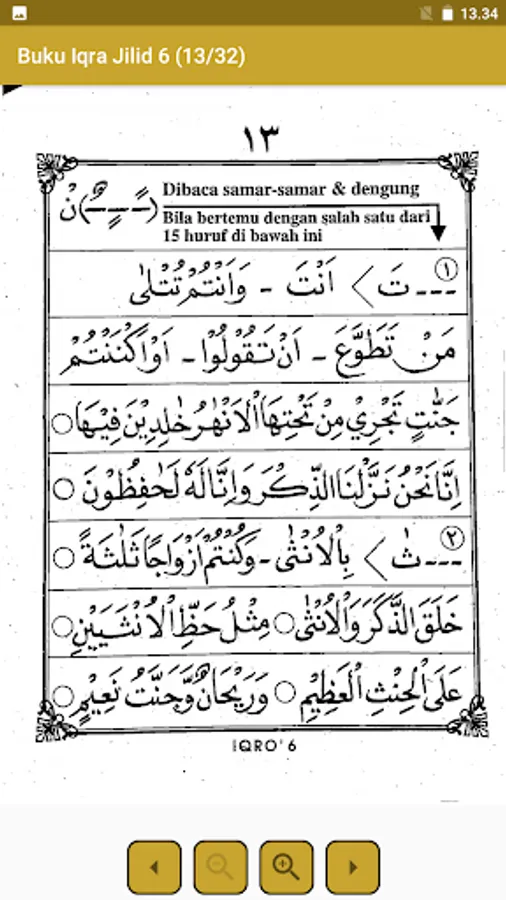 13.34
Buku Iqra Jilid 6 (13/32)
١٣
نْ (ـًـ ـٍـ ـٌـ)
Dibaca samar-samar & dengung
Bila bertemu dengan salah satu dari
15 huruf di bawah ini
١ --- تَ > اَنْتَ - وَاَنْتُمْ تُتْلٰى
مَنْ تَطَوَّعَ - اَنْ تَقُولُوْا - اَوَاكْنَنْتُمْ
جَنّٰتٍ تَجْرِيْ مِنْ تَحْتِهَا الْاَنْهٰرُ خٰلِدِيْنَ فِيْهَا ○
اِنَّا نَحْنُ نَزَّلْنَا الذِّكْرَ وَاِنَّا لَهٗ لَحٰفِظُوْنَ ○
٢ --- ثٰ > بِالْاُنْثٰى - وَكُنْتُمْ اَزْوَاجًا ثَلٰثَةً ○
خَلَقَ الذَّكَرَ وَالْاُنْثٰى ○ مِثْلُ حَظِّ الْاُنْثَيَيْنِ ○
عَلَى الْحِنْثِ الْعَظِيْمِ ○ وَرَيْحَانٌ وَّجَنَّتُ نَعِيْمٍ ○
IQRO' 6